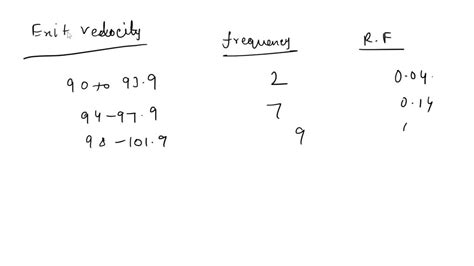 Exit velocity frequency R.F
90 to 93.9 2 0.04
94-97.9 7 0.14
98-101.9 9